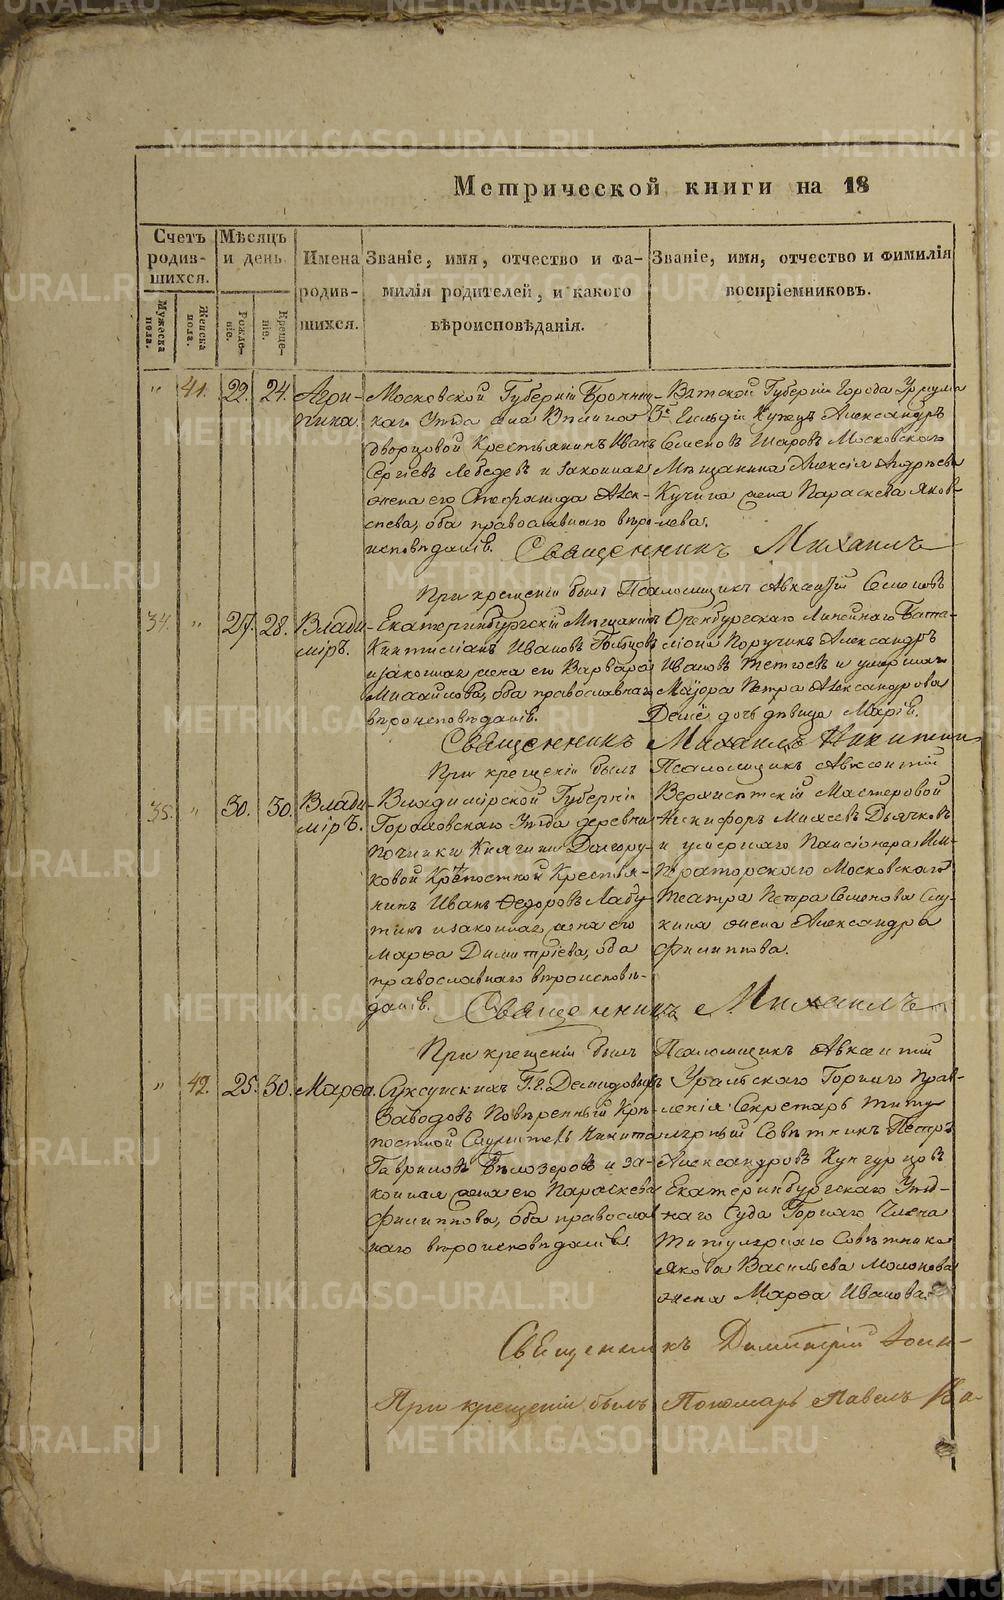 Метрической книги на 18
Счетъ родив-шихся.
Мѣсяцъ и день
Имена родив-шихся.
Званіе, имя, отчество и фа-
милія родителей, и какого
вѣроисповѣданія.
Званіе, имя, отчество и фимилія
воспріемниковъ.
Мужеска пола.
Женска пола.
Рожде-ніе.
Креще-ніе.
„ 41. 22. 24.
Агри-
пина.
Московской Губерніи Бронниц-
каго Уѣзда села
дворцовой Крестьянинъ Иванъ
Сергіевъ Лебедевъ и законная
жена его Стефанида Алек-
сѣева, оба православнаго вѣро-
исповѣданія.
Вятской Губерніи Города Уржума
3й Гильдіи Купецъ Александръ
Семеновъ Шаровъ Московскаго
Мѣщанина Алексія Андрѣева
Кучина жена Параскева Яков-
лева.
Священникъ Михаилъ
При крещеніи былъ Псаломщикъ Авксентій Семеновъ
34. „ 27. 28.
Влади-
міръ.
Екатеринбургскій Мѣщанинъ
Иванъ
и законная жена его Варвара
Михайлова, оба православнаго
вѣроисповѣданія.
Оренбургскаго Линейнаго Бата-
ліона Поручикъ Александръ
Ивановъ и умершаго
Маіора Петра Александрова
дочь дѣвица Марія.
Священникъ Михаилъ Никитин
При крещеніи былъ Псаломщикъ Авксентій
35. „ 30. 30.
Влади-
міръ.
Владимірской Губерніи
Гороховскаго Уѣзда деревни
Починки Княгини Долгору-
ковой Крѣпостной Крестья-
нинъ Иванъ Ѳедоровъ Лабу-
тинъ и законная жена его
Марѳа Димитріева, оба
православнаго вѣроисповѣ-
данія.
Верхисетскій Мастеровой
Никифоръ Михеевъ Дьячковъ
и умершаго Пансіонера Им-
ператорскаго Московскаго
Театра Петра Семенова
жена Александра
Филиппова.
Священникъ Михаилъ
При крещеніи былъ Псаломщикъ Авксентій
„ 42. 25. 30.
Марѳа.
Суксунскихъ Г.г. Демидовыхъ
Заводовъ Повѣренный Крѣ-
постной Служитель Никита
Гавриловъ Бѣлозеровъ и за-
конная жена его Параскева
Филиппова, оба православ-
наго вѣроисповѣданія.
Уральскаго Горнаго Прав-
ленія Секретарь Титу-
лярный Совѣтникъ Петръ
Александровъ Кунгурцовъ
Екатеринбургскаго Уѣзд-
наго Суда Горнаго Члена
Титулярнаго Совѣтника
Якова Васильева Молокова
жена Марѳа Иванова.
Священникъ Димитрій
При крещеніи былъ Пономарь Павелъ